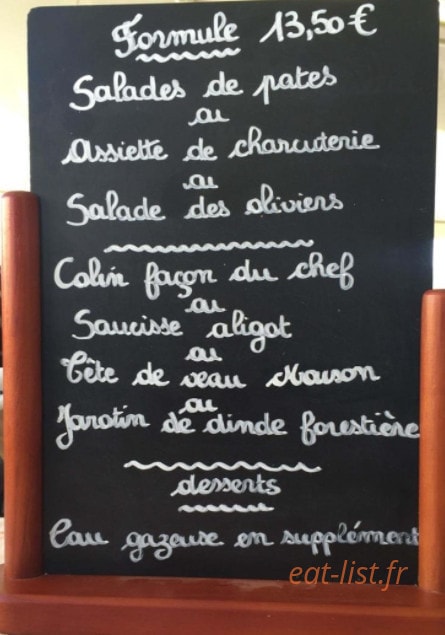 Formule 13,50 €
Salades de pates
ou
Assiette de charcuterie
ou
Salade des oliviers
Colin façon du chef
ou
Saucisse aligot
ou
Tête de veau Maison
ou
Jarotin de dinde forestière
desserts
Eau gazeuse en supplément
eat-list.fr